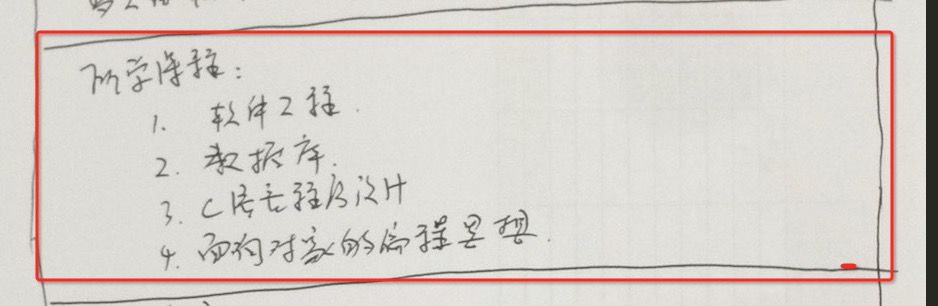 所学课程:
1. 软件工程.
2. 数据库.
3. C语言程序设计
4. 面向对象的编程思想.